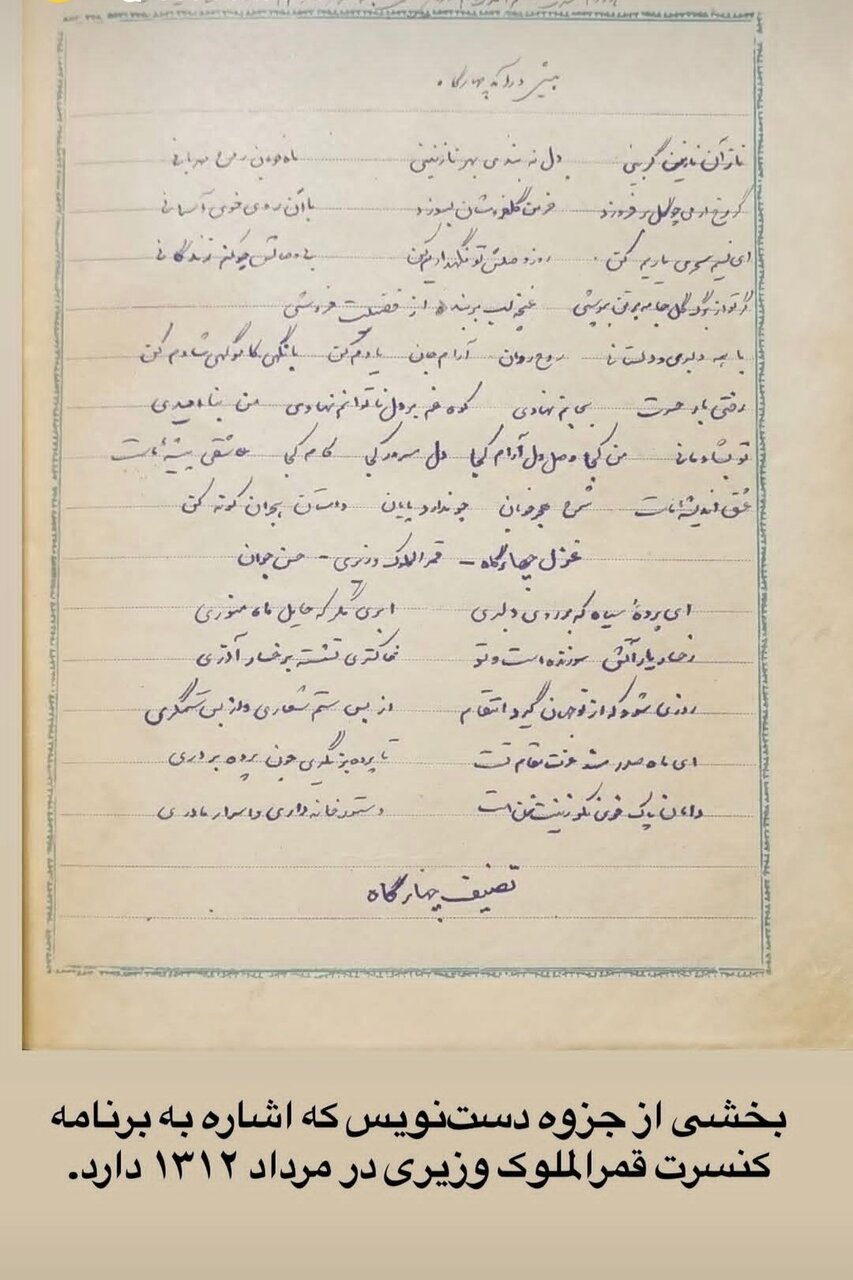 پیش درآمد چهارگاه
ناز آن نازنین گر ببینی دل نه بندی بهر نازنینی ماه خوبان رمز مهربانی
گر رخ از می چو گل بر فروزد خرمن گلفروشان بسوزد با آن روی خوی آسمانی
ای نسیم سحری یاریم کن روز وصلش تو نگهداریم کن بی وصالش چو کنم زندگانی
گر تو از برگ گل جامه بر تن بپوشی غنچه لب بربندد از فضیلت فروشی
با همه دلبری و دلستانی روح روان آرام جان یادم کن با نگهی گاهگهی شادم کن
رفتی بار حسرت بجانم نهادی کوه غم بر دل ناتوانم نهادی من بناامیدی
تو بشادمانی من کجا وصل دل آرام کجا دل سرور کجا کام کجا عاشقی پیشه ماست
عشق اندیشه ماست شرح هجر خوبان چو ندارد پایان داستان هجران کوته کن
غزل چهارگاه - قمرالملوک وزیری - حسن جوان
ای پردهٔ سیاه که بر روی دلبری ابری مگر که حایل ماه منوری
رخسار یار آتش سوزنده است و تو خاکستری نشسته برخسار آذری
روزی شود که از تو جهان گیرد انتقام از بس ستم شعاری و از بس ستمگری
ای ماه صدر مسند عزت مقام تست تا پرده بنگری چون پرده برداری
دامان پاک خوی نکو زینت زن است دستور خانه داری و اسرار مادری
تصنیف چهارگاه
بخشی از جزوه دست‌نویس که اشاره به برنامه
کنسرت قمرالملوک وزیری در مرداد ۱۳۱۲ دارد.